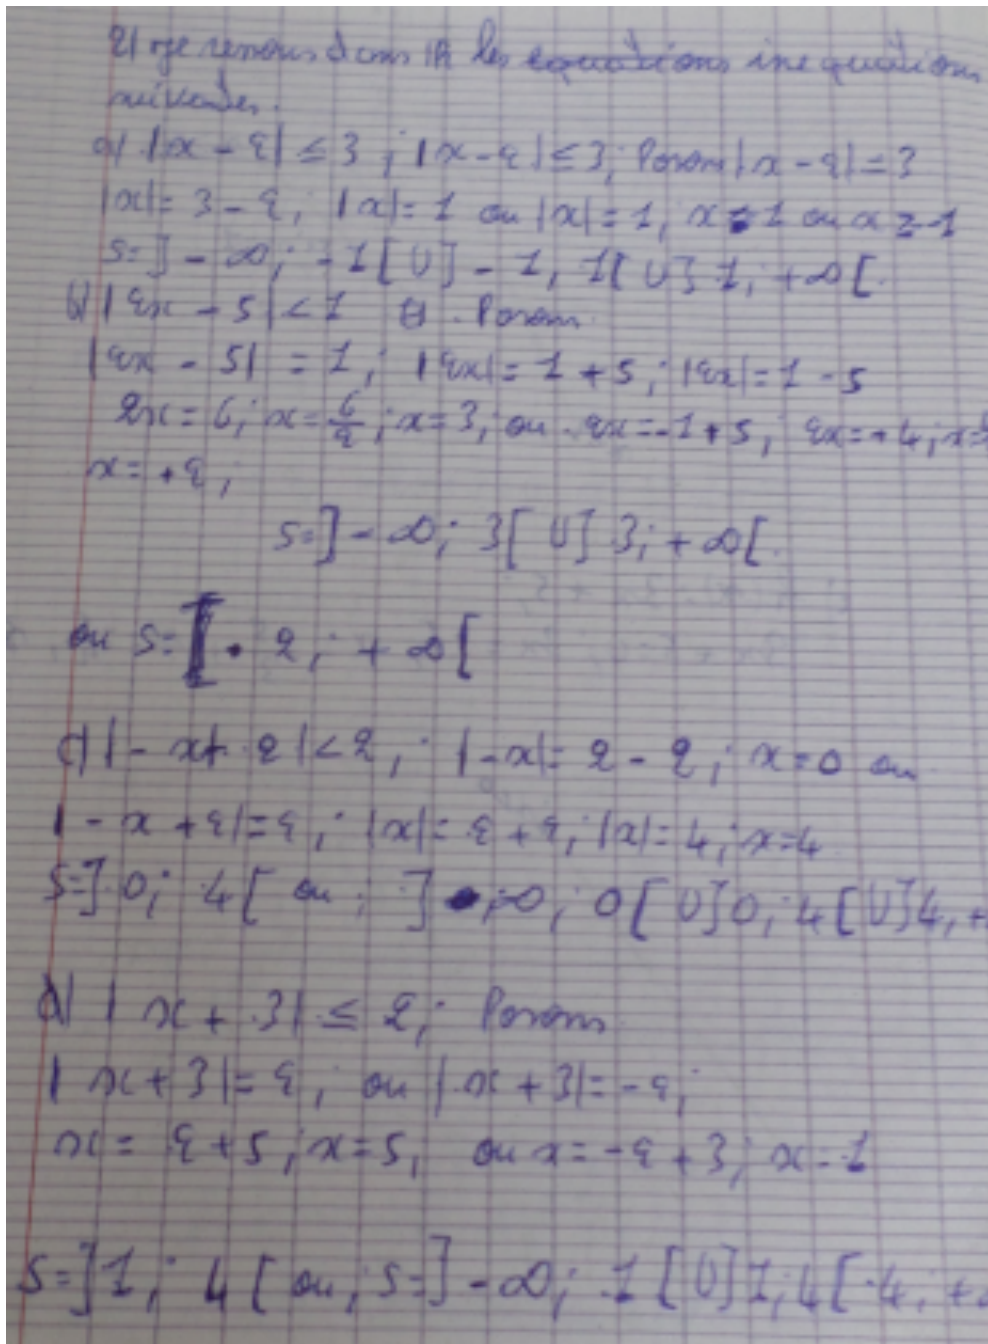 2) je resous dans IR les equations inequations
suivantes.
a) |x - 2| ≤ 3 ; |x - 2| ≤ 3; Posons |x - 2| = 3
|x| = 3 - 2, |x| = 1 ou |x| = 1, x = 1 ou x = -1
S = ] - ∞; -1 [ U ] - 1, 1 [ U ] 1; +∞ [.
b) |2x - 5| < 1 Posons
|2x - 5| = 1; |2x| = 1 + 5; |2x| = 1 - 5
2x = 6; x = 6/2; x = 3; ou 2x = -1 + 5, 2x = +4; x =
x = +2;
S = ] - ∞; 3 [ U ] 3; +∞ [.
ou S = [ 2; +∞ [
c) |- x + 2| < 2, |-x| = 2 - 2; x = 0 ou
|- x + 2| = 2, |x| = 2 + 2; |x| = 4; x = 4
S = ] 0; 4 [ ou ; ] 0; 0 [ U ] 0; 4 [ U ] 4, +
d) | x + 3| ≤ 2; Posons
| x + 3| = 2, ou | x + 3| = -2;
x = 2 + 5; x = 5, ou x = -2 + 3; x = 1
S = ] 1; 4 [ ou; S = ] - ∞; 1 [ U ] 1; 4 [ 4; +